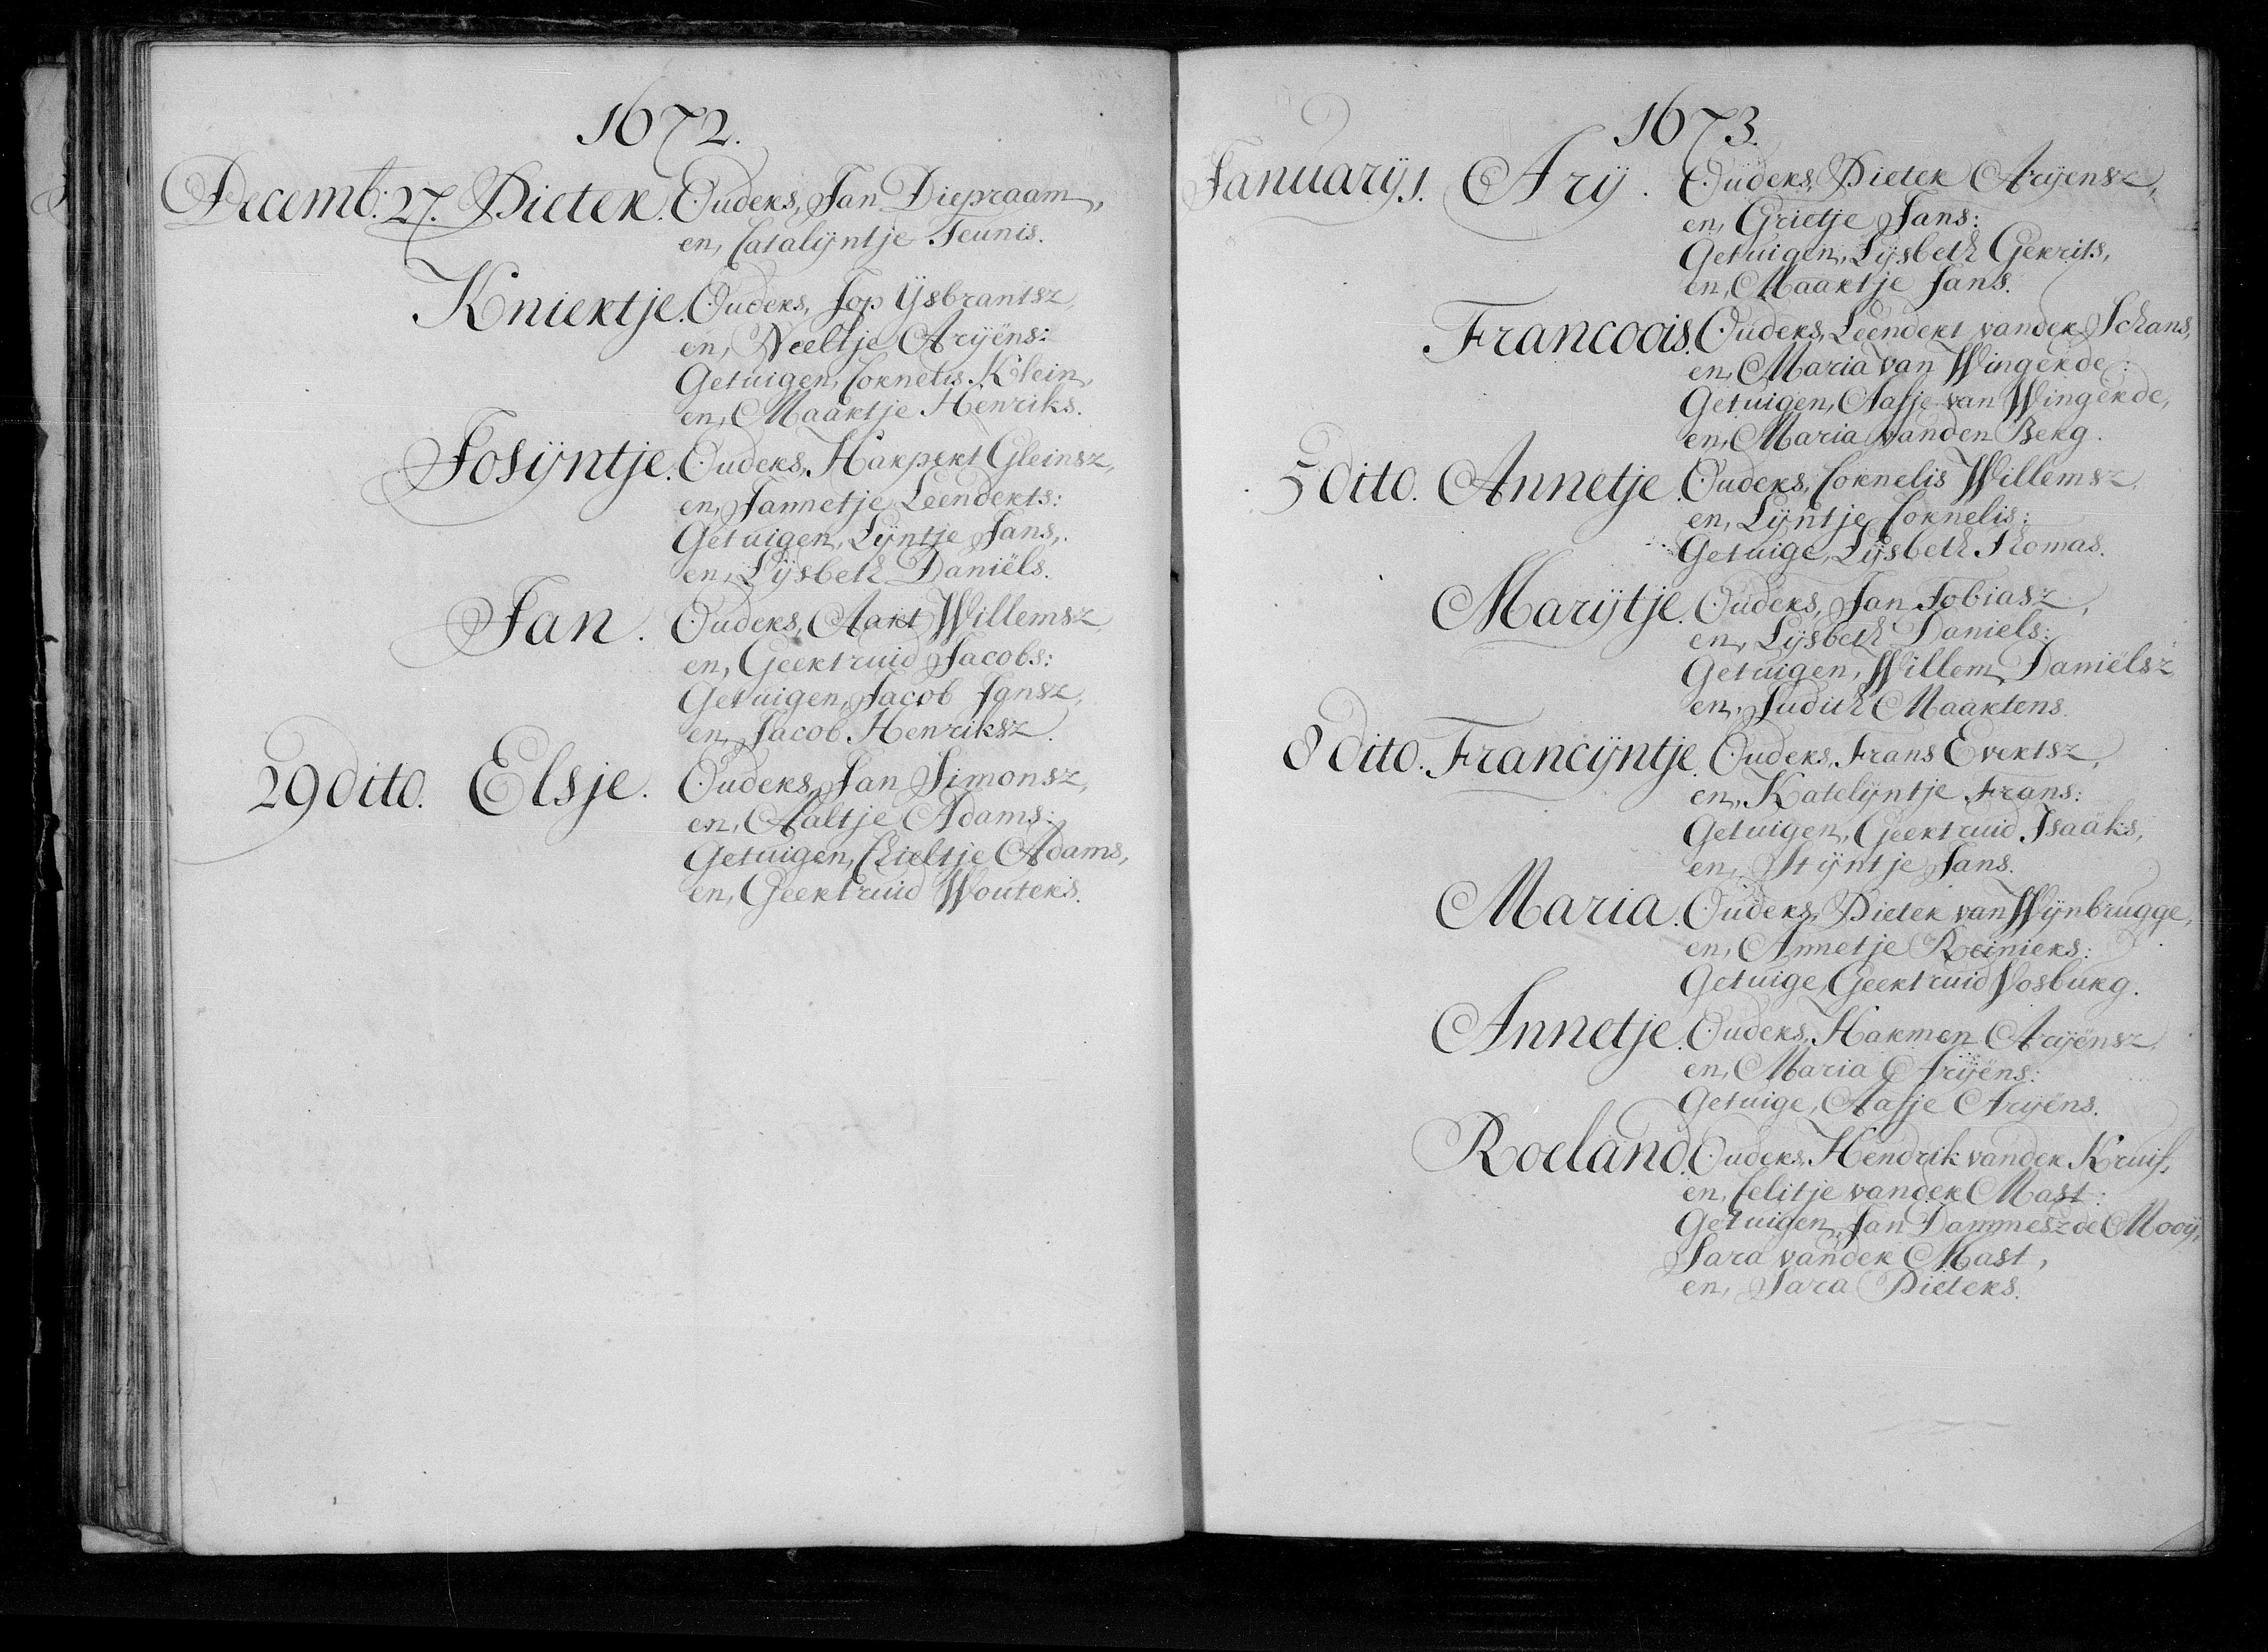 1672.
Decemb: 27. Pieter. Ouders, Jan Diepraam,
en, Catalijntje Teunis.
Kniertje. Ouders, Jop Ysbrantsz,
en, Neeltje Arijëns:
Getuigen, Cornelis Klein,
en, Maartje Henriks.
Josijntje. Ouders, Harpert Gleinsz,
en, Jannetje Leenderts:
Getuigen, Lijntje Jans,
en, Lijsbeth Daniëls.
Jan. Ouders, Aart Willemsz,
en, Geertruid Jacobs:
Getuigen, Jacob Jansz,
en, Jacob Henriksz.
29 dito. Elsje. Ouders, Jan Simonsz,
en, Aaltje Adams:
Getuigen, Chieltje Adams,
en, Geertruid Wouters.
1673.
January 1. Arij. Ouders, Pieter Arijensz,
en, Grietje Jans:
Getuigen, Lijsbeth Gerrits,
en, Maartje Jans.
Francoois. Ouders, Leendert vander Schans,
en, Maria van Wingerde:
Getuigen, Aafje van Wingerde,
en, Maria vanden Berg.
5 dito. Annetje. Ouders, Cornelis Willemsz,
en, Lijntje Cornelis:
Getuige, Lijsbeth Thomas.
Marijtje. Ouders, Jan Tobiasz,
en, Lijsbeth Daniels:
Getuigen, Willem Daniëlsz,
en, Judith Maartens.
8 dito. Francijntje. Ouders, Frans Evertsz,
en, Katelijntje Frans:
Getuigen, Geertruid Isaäks,
en, Stijntje Jans.
Maria. Ouders, Pieter van Wijnbrugge,
en, Annetje Reiniers:
Getuige, Geertruid Vosburg.
Annetje. Ouders, Harmen Arijënsz,
en, Maria Arijëns:
Getuige, Aafje Arijëns.
Roeland. Ouders, Hendrik vander Kruis,
en, Celitje vander Mast:
Getuigen, Jan Dammesz de Mooij,
Sara vander Mast,
en, Sara Pieters.